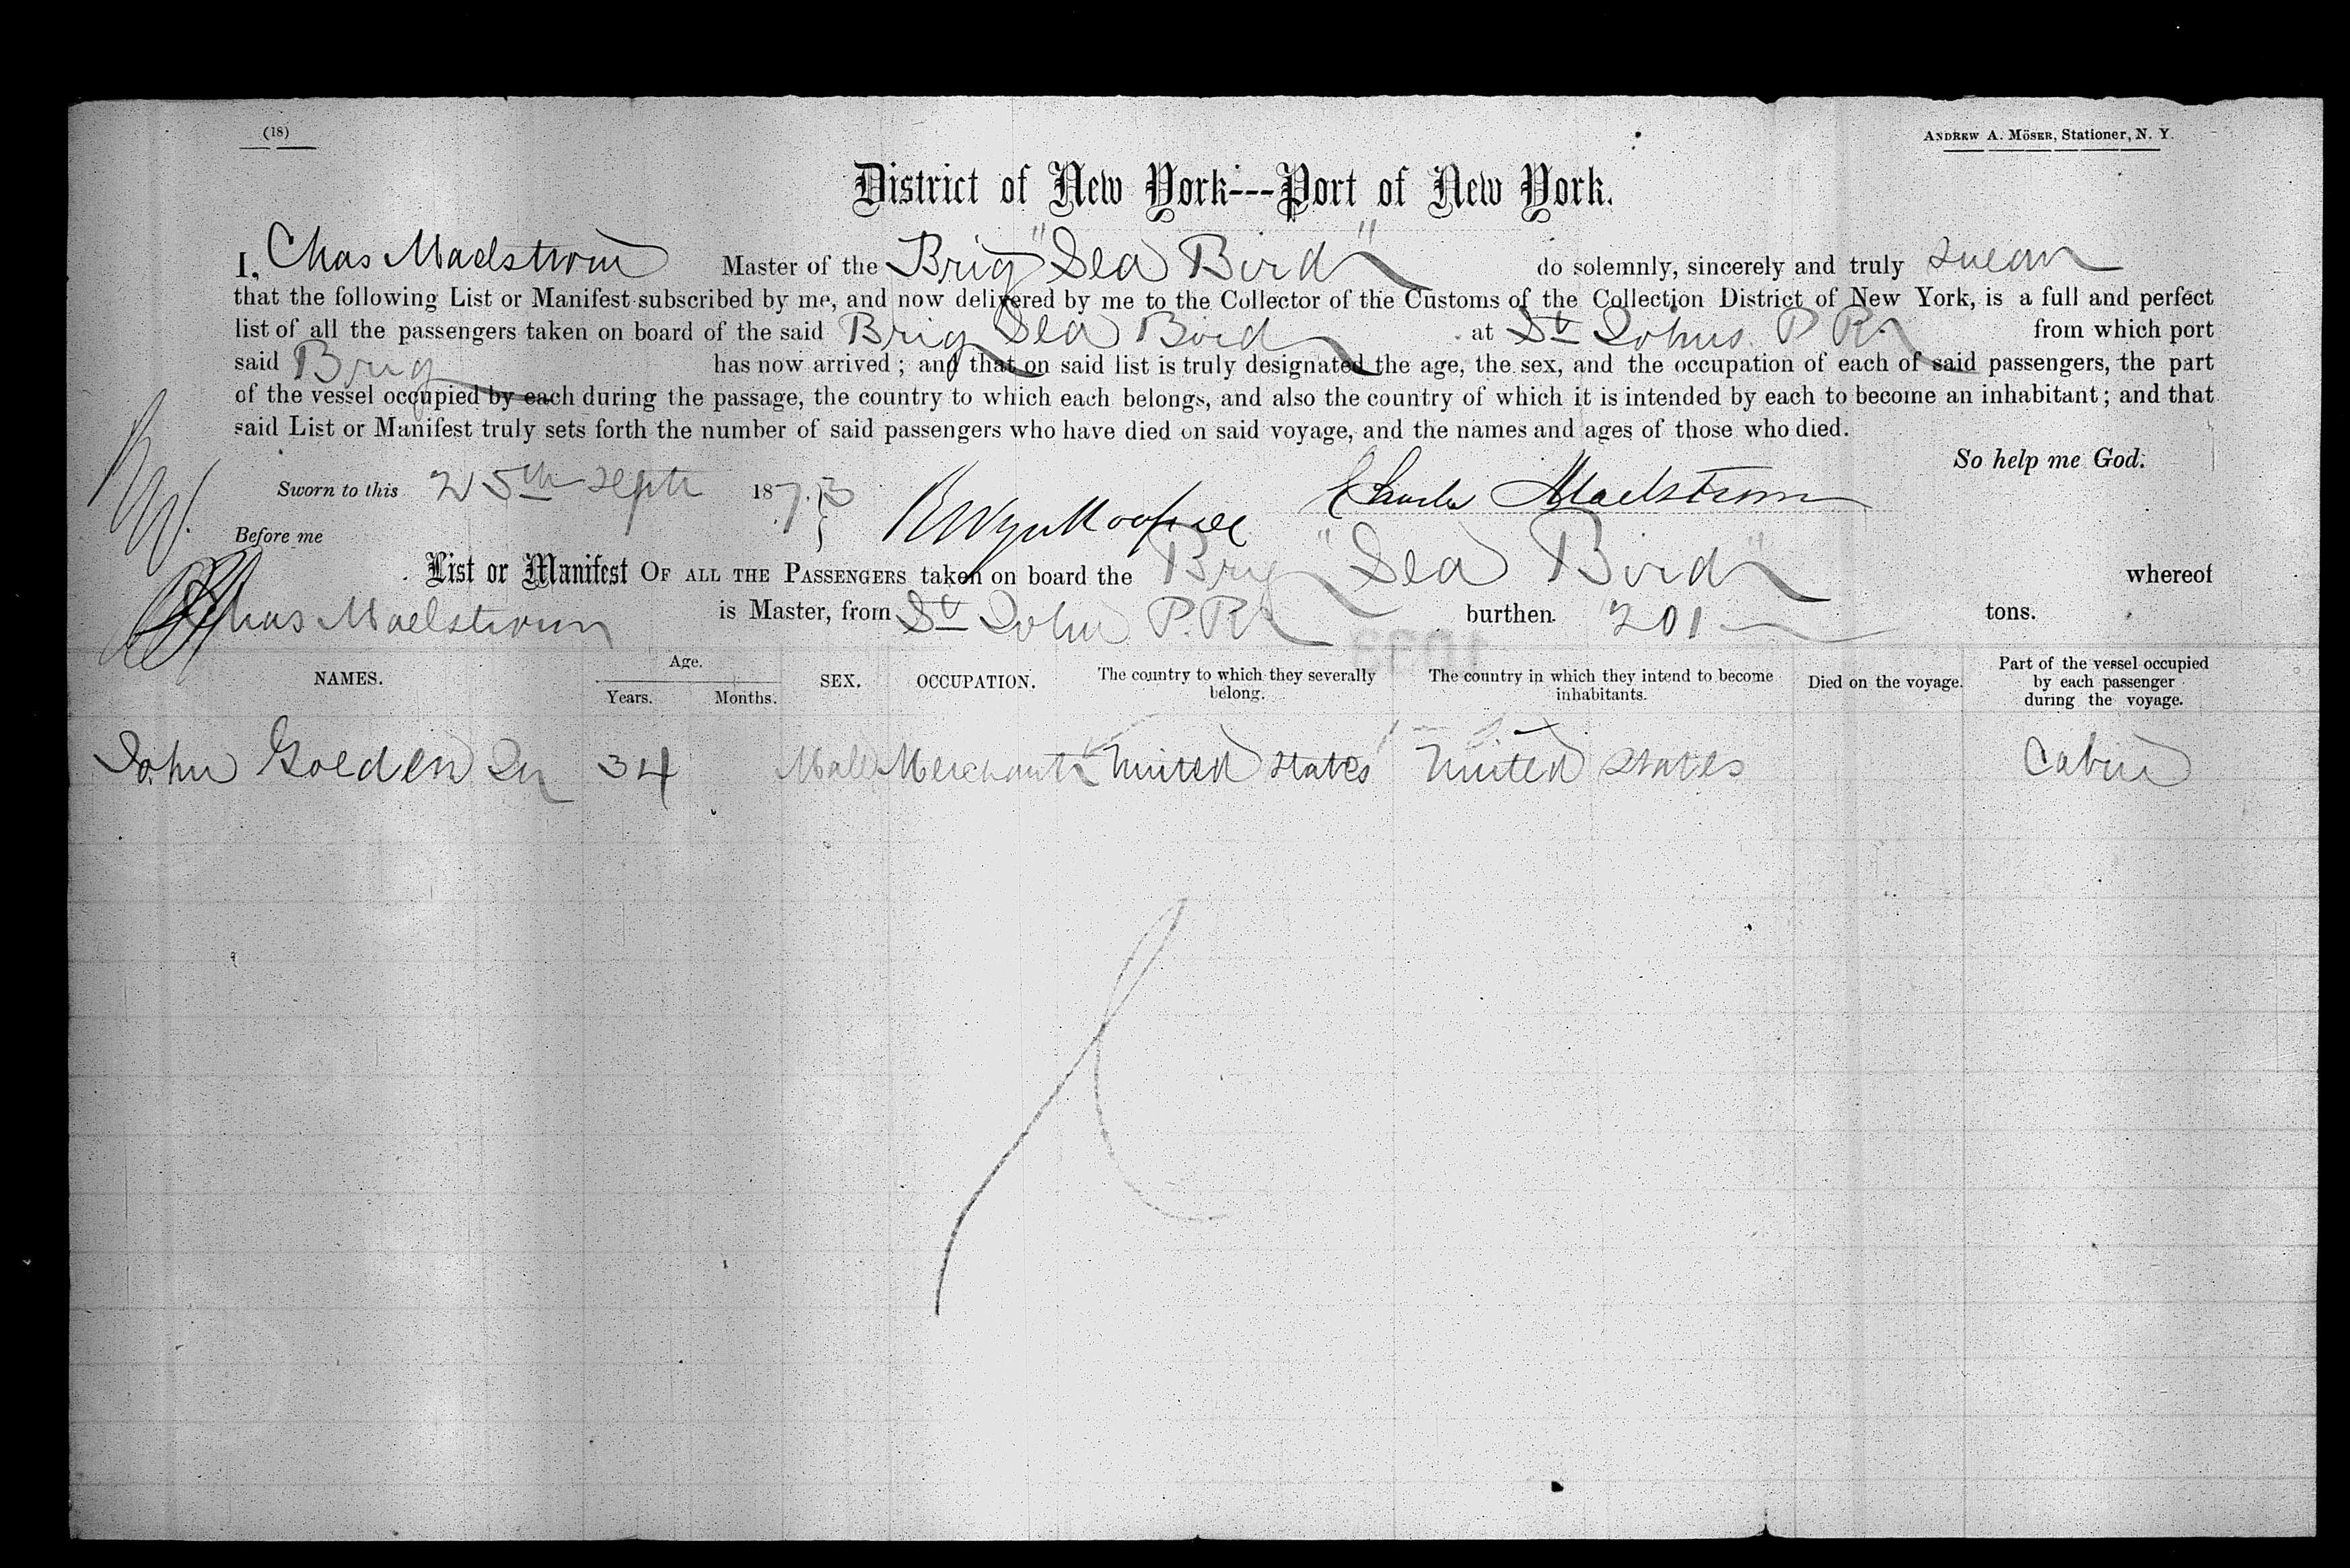 (18)
ANDREW A. MÖSER, Stationer, N. Y.
District of New York---Port of New York.
I, Chas Maelstrom Master of the Brig "Sea Bird" do solemnly, sincerely and truly swear
that the following List or Manifest subscribed by me, and now delivered by me to the Collector of the Customs of the Collection District of New York, is a full and perfect
list of all the passengers taken on board of the said Brig Sea Bird at St Johns P. R. from which port
said Brig has now arrived; and that on said list is truly designated the age, the sex, and the occupation of each of said passengers, the part
of the vessel occupied by each during the passage, the country to which each belongs, and also the country of which it is intended by each to become an inhabitant; and that
said List or Manifest truly sets forth the number of said passengers who have died on said voyage, and the names and ages of those who died.
So help me God.
Sworn to this 25th Sept 1873 Charles Maelstrom
Before me
List or Manifest OF ALL THE PASSENGERS taken on board the Brig "Sea Bird" whereof
Chas Maelstrom is Master, from St John P. R. burthen 201 tons.
NAMES. Age. Years. Months. SEX. OCCUPATION. The country to which they severally belong. The country in which they intend to become inhabitants. Died on the voyage. Part of the vessel occupied by each passenger during the voyage.
John Golden 34 Male Merchant United States United States Cabin